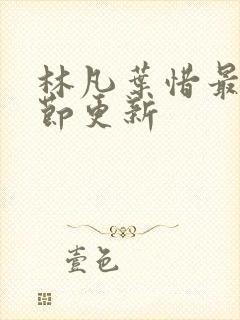 林凡葉惜最
節更新
壹色